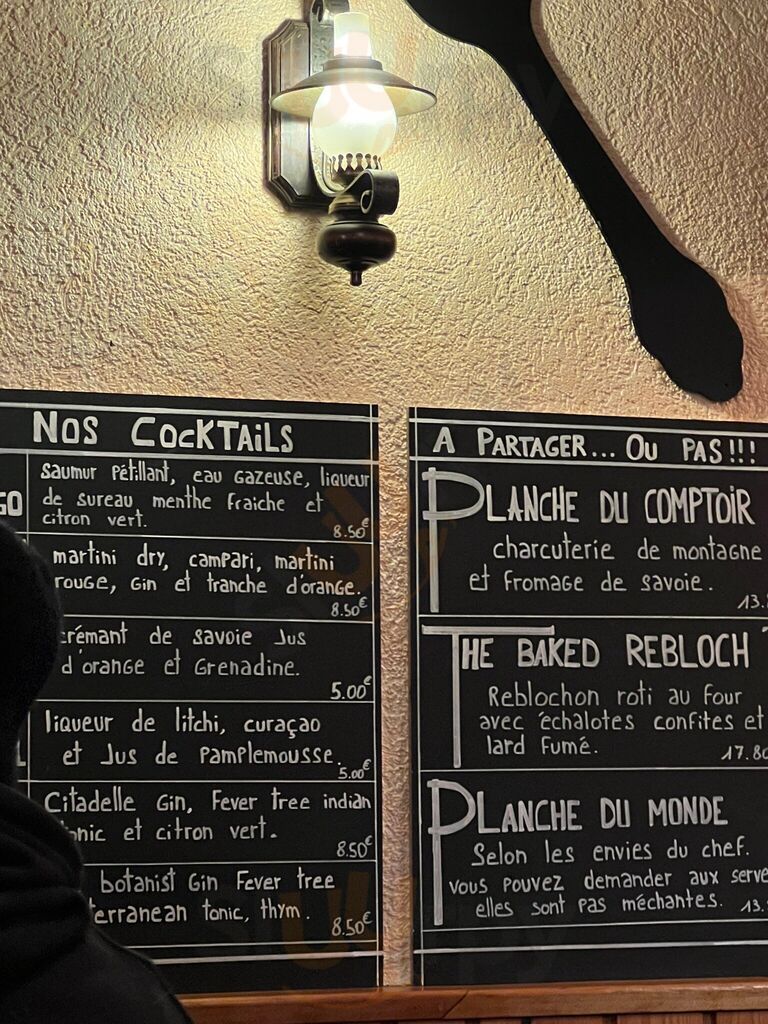 Nos Cocktails
Saumur Pétillant, eau gazeuse, liqueur
de sureau, menthe fraiche et
citron vert.
8.50€
martini dry, campari, martini
rouge, Gin et tranche d'orange.
8.50€
crémant de savoie Jus
d'orange et Grenadine.
5.00€
liqueur de litchi, curaçao
et Jus de Pamplemousse.
5.00€
Citadelle Gin, Fever tree indian
tonic et citron vert.
8.50€
botanist Gin Fever tree
terranean tonic, thym.
8.50€
A PARTAGER... OU PAS!!!
PLANCHE DU COMPTOIR
charcuterie de montagne
et fromage de savoie.
13.
THE BAKED REBLOCH
Reblochon roti au four
avec échalotes confites et
lard fumé.
17.80
PLANCHE DU MONDE
Selon les envies du chef.
vous pouvez demander aux serve
elles sont pas méchantes.
13.